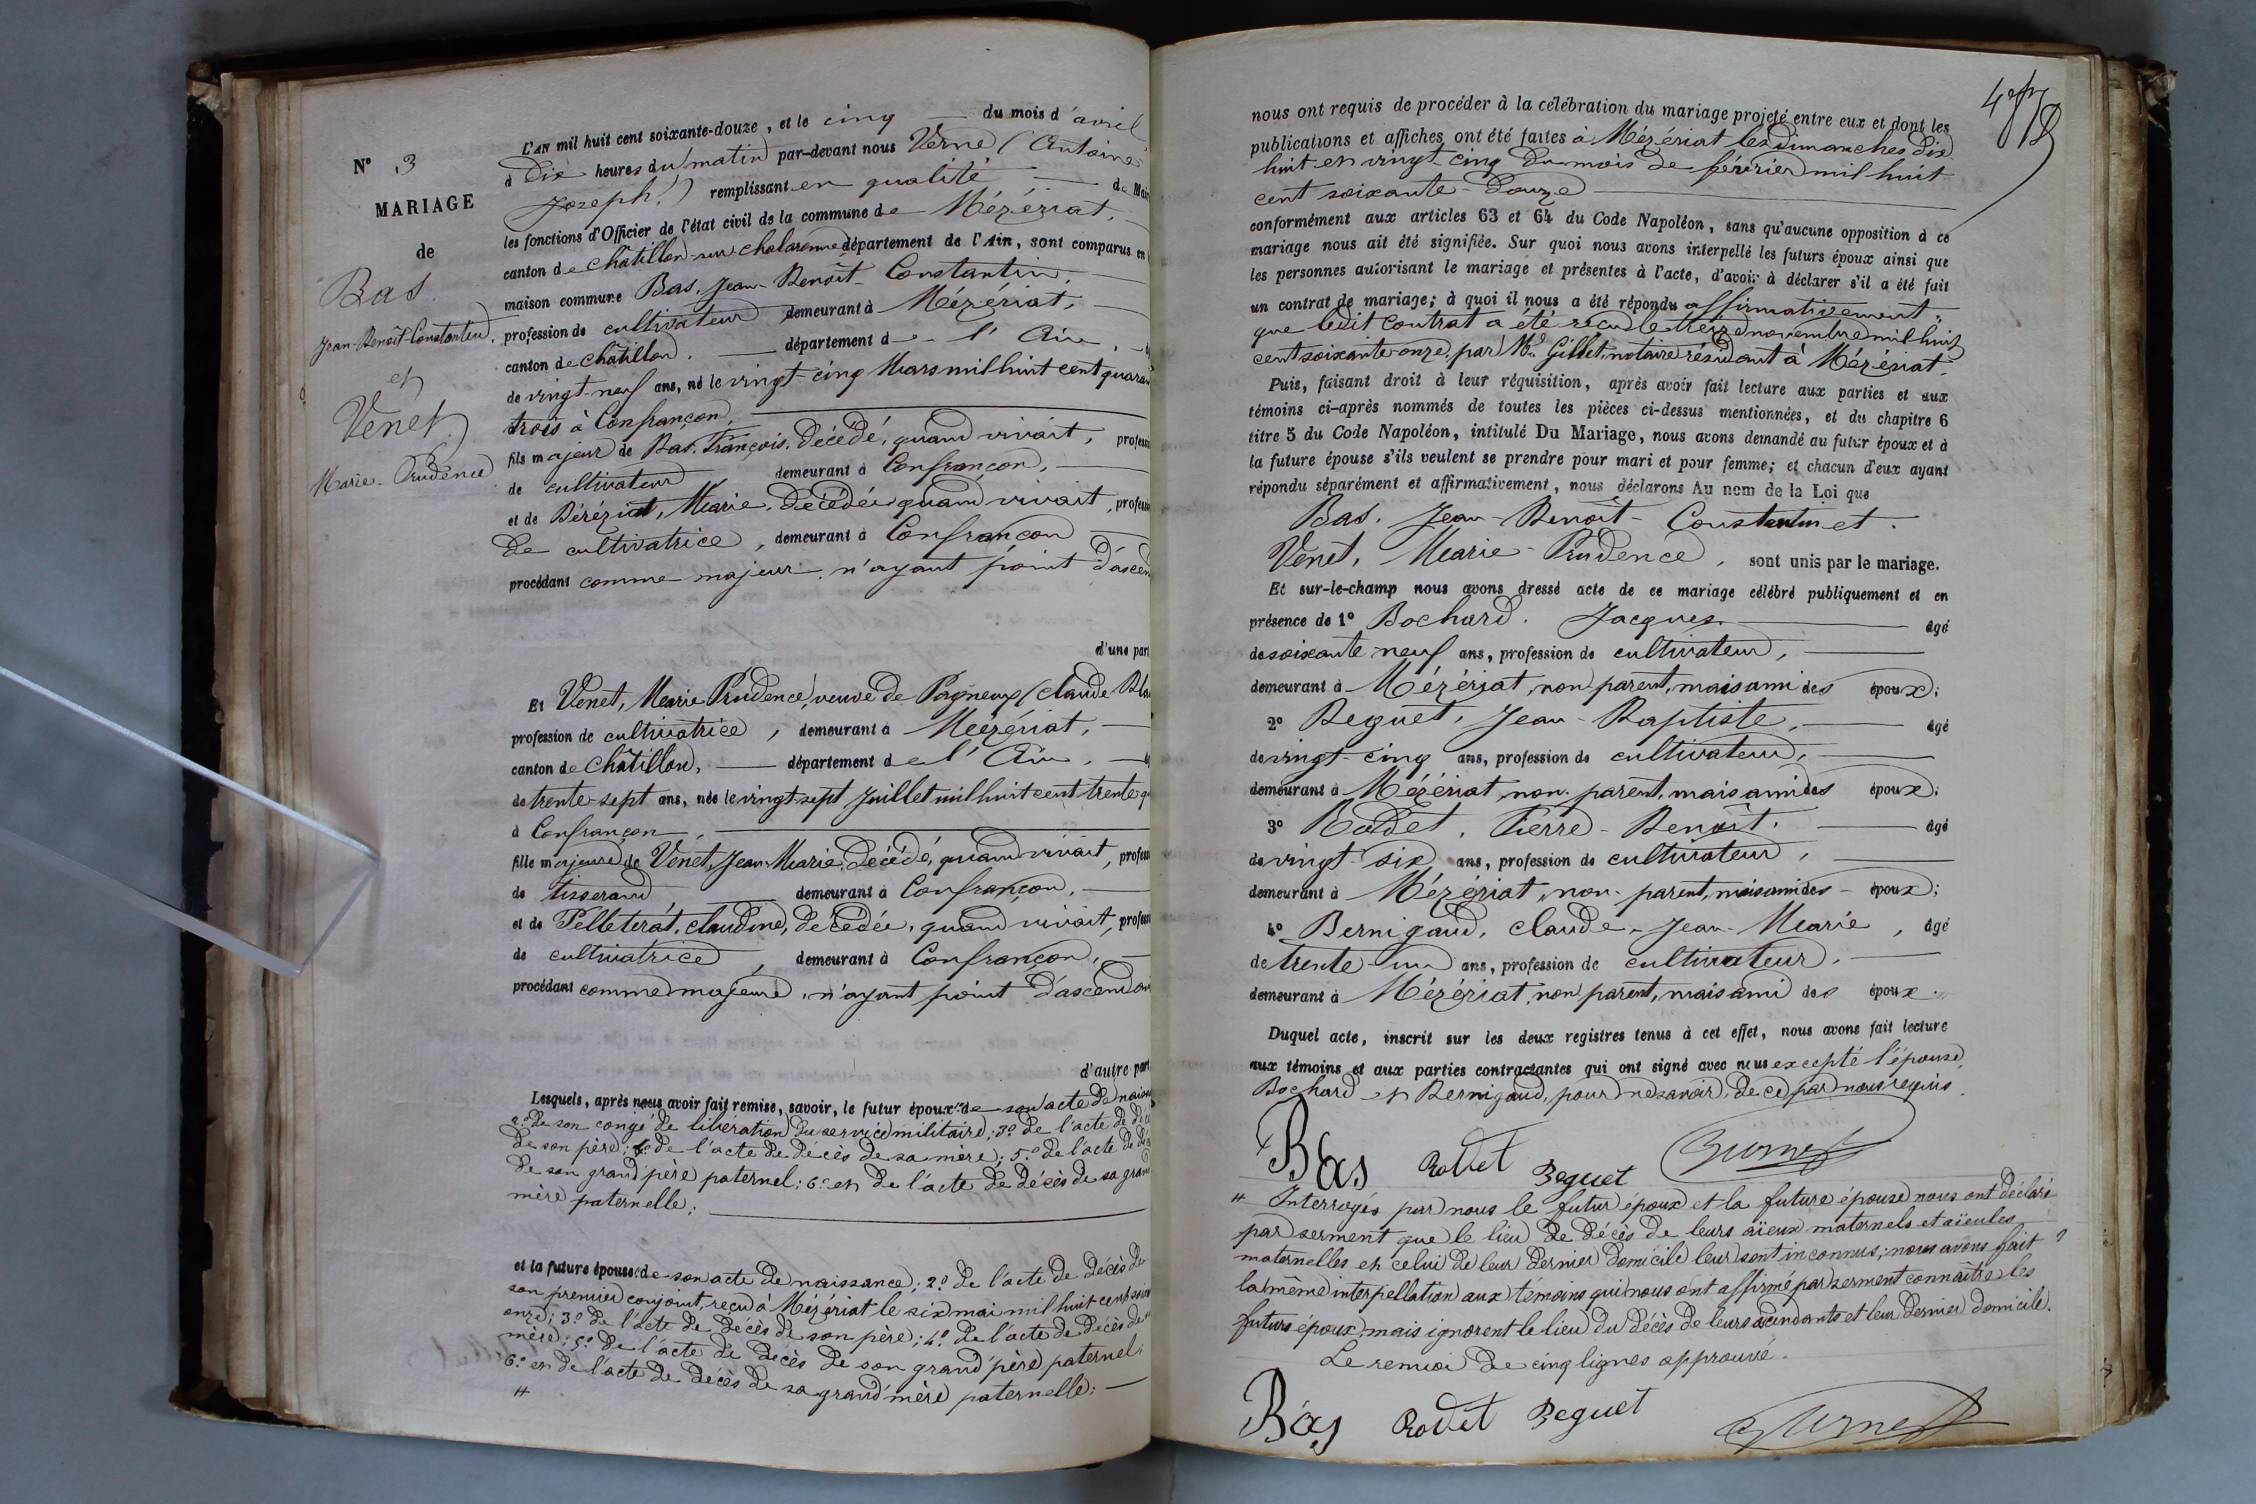 N° 3
MARIAGE
de
Bas
Jean-Benoît-Constantin,
et
Venet
Marie-Prudence
L'AN mil huit cent soixante-douze, et le cinq du mois d'avril
à dix heures du matin par-devant nous Verne (Antoine
Joseph) remplissant en qualité de Mair
les fonctions d'Officier de l'état civil de la commune de Mézériat,
canton de Châtillon-sur-Chalaronne département de l'Ain, sont comparus en
maison commune Bas, Jean-Benoît-Constantin,
profession de cultivateur demeurant à Mézériat,
canton de Châtillon, département de l'Ain,
de vingt-neuf ans, né le vingt-cinq Mars mil huit cent quaran
trois à Confrançon,
fils majeur de Bas, François, décédé, quand vivait, profess
de cultivateur demeurant à Confrançon,
et de Bérézial, Marie, décédée quand vivait, profess
de cultivatrice, demeurant à Confrançon
procédant comme majeur, n'ayant point d'ascen
d'une part
Et Venet, Marie Prudence, veuve de Pagneux (Claude Bla
profession de cultivatrice, demeurant à Mézériat,
canton de Châtillon, département de l'Ain,
de trente-sept ans, née le vingt-sept Juillet mil huit cent trente q
à Confrançon,
fille majeure de Venet, Jean-Marie, décédé, quand vivait, profess
de tisserand demeurant à Confrançon,
et de Pelleterat, Claudine, décédée, quand vivait, profess
de cultivatrice, demeurant à Confrançon,
procédant comme majeure, n'ayant point d'ascendan
d'autre part
Lesquels, après nous avoir fait remise, savoir, le futur époux 1° de son acte de naiss
2° de son congé de libération du service militaire; 3° de l'acte de décè
de son père; 4° de l'acte de décès de sa mère; 5° de l'acte de dé
de son grand'père paternel; 6° et de l'acte de décès de sa grand
mère paternelle;
et la future épouse: de son acte de naissance; 2° de l'acte de décès de
son premier conjoint, reçu à Mézériat le six mai mil huit cent soix
onze; 3° de l'acte de décès de son père; 4° de l'acte de décès de
mère; 5° de l'acte de décès de son grand'père paternel;
6° et de l'acte de décès de sa grand'mère paternelle;
#
nous ont requis de procéder à la célébration du mariage projeté entre eux et dont les
publications et affiches ont été faites à Mézériat les dimanches dix
huit et vingt-cinq du mois de février mil huit
cent soixante-douze
conformément aux articles 63 et 64 du Code Napoléon, sans qu'aucune opposition à ce
mariage nous ait été signifiée. Sur quoi nous avons interpellé les futurs époux ainsi que
les personnes autorisant le mariage et présentes à l'acte, d'avoir à déclarer s'il a été fait
un contrat de mariage; à quoi il nous a été répondu affirmativement,
que ledit contrat a été reçu le treize novembre mil huit
cent soixante onze, par Me Gillet, notaire résidant à Mézériat.
Puis, faisant droit à leur réquisition, après avoir fait lecture aux parties et aux
témoins ci-après nommés de toutes les pièces ci-dessus mentionnées, et du chapitre 6
titre 5 du Code Napoléon, intitulé Du Mariage, nous avons demandé au futur époux et à
la future épouse s'ils veulent se prendre pour mari et pour femme; et chacun d'eux ayant
répondu séparément et affirmativement, nous déclarons Au nom de la Loi que
Bas, Jean-Benoît-Constantin et
Venet, Marie-Prudence, sont unis par le mariage.
Et sur-le-champ nous avons dressé acte de ce mariage célébré publiquement et en
présence de 1° Bochard, Jacques âgé
de soixante neuf ans, profession de cultivateur,
demeurant à Mézériat, non parent, mais ami des époux;
2° Reguet, Jean-Baptiste, âgé
de vingt-cinq ans, profession de cultivateur,
demeurant à Mézériat, non parent, mais ami des époux;
3° Rodet, Pierre-Benoît, âgé
de vingt six ans, profession de cultivateur,
demeurant à Mézériat, non-parent, mais ami des époux;
4° Bernigaud, Claude-Jean-Marie, âgé
de trente-un ans, profession de cultivateur,
demeurant à Mézériat, non parent, mais ami des époux.
Duquel acte, inscrit sur les deux registres tenus à cet effet, nous avons fait lecture
aux témoins et aux parties contractantes qui ont signé avec nous excepté l'épouse,
Bochard et Bernigaud, pour ne savoir, de ce par nous requis.
Bas Rodet Reguet
# Interrogés par nous le futur époux et la future épouse nous ont déclaré
par serment que le lieu de décès de leurs aïeux maternels et aïeules
maternelles et celui de leur dernier domicile leur sont inconnus; nous avons fait
la même interpellation aux témoins qui nous ont affirmé par serment connaître les
futurs époux, mais ignorent le lieu du décès de leurs ascendants et leur dernier domicile.
Le renvoi de cinq lignes approuvé.
Bas Rodet Reguet